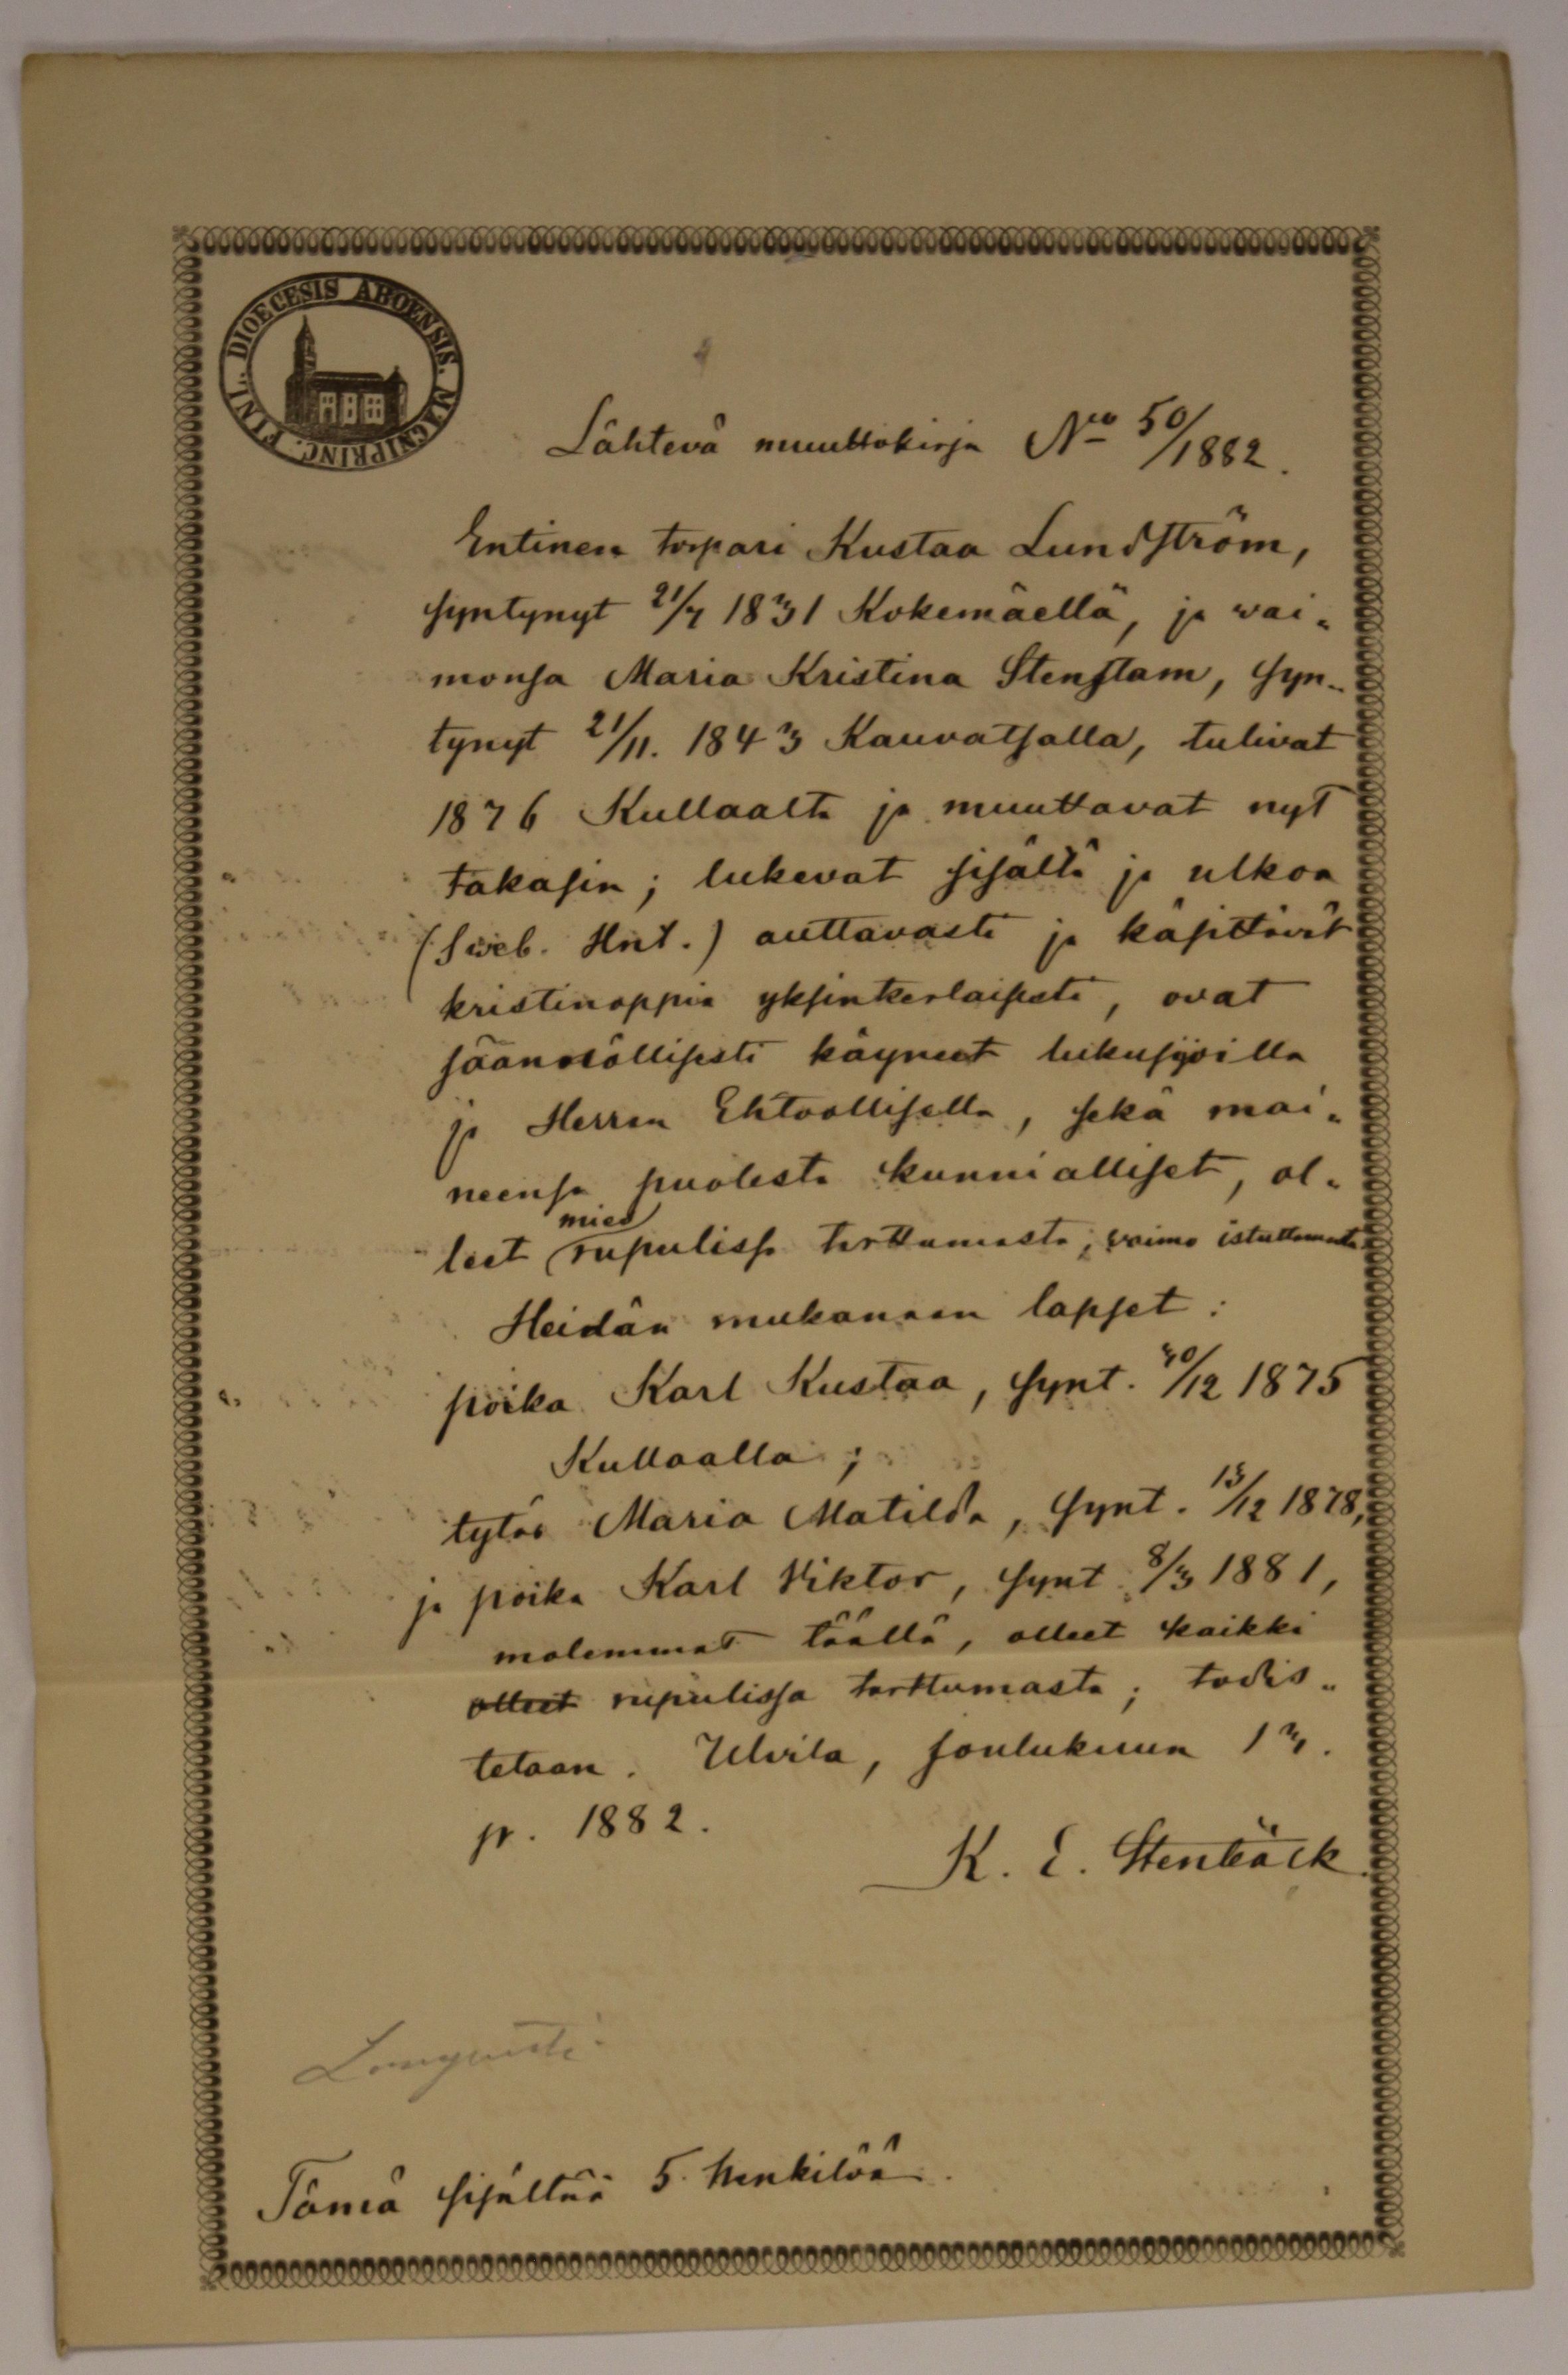 DIOECESIS ABOENSIS. MAGNIPRINC. FINL.
Lähtevä muuttokirja No 50/1882.
Entinen torpari Kustaa Lundström,
syntynyt 21/7 1831 Kokemäellä, ja wai-
monsa Maria Kristina Stenstam, syn-
tynyt 21/11. 1843 Kauvatsalla, tulivat
1876 Kullaalta ja muuttavat nyt
takasin; lukevat sisältä ja ulkoa
(Sveb. Hnt.) auttavasti ja käsittävät
kristinoppia yksinkerlaisesti, ovat
säännöllisesti käyneet lukusijoilla
ja Herran Ehtoollisella, sekä mai-
neensa puolesta kunnialliset, ol-
mies
leet rupulissa tarttumasta, vaimo istuttamasta
Heidän mukanaan lapset:
poika Karl Kustaa, synt. 30/12 1875
Kullaalla;
tytär Maria Matilda, synt. 13/12 1878,
ja poika Karl Viktor, synt. 8/3 1881,
molemmat täällä, olleet kaikki
olleet rupulissa tarttumasta; todis-
tetaan. Ulvila, joulukuun 13.
p. 1882.
K. E. Stenbäck.
Tämä sisältää 5 henkilöä.